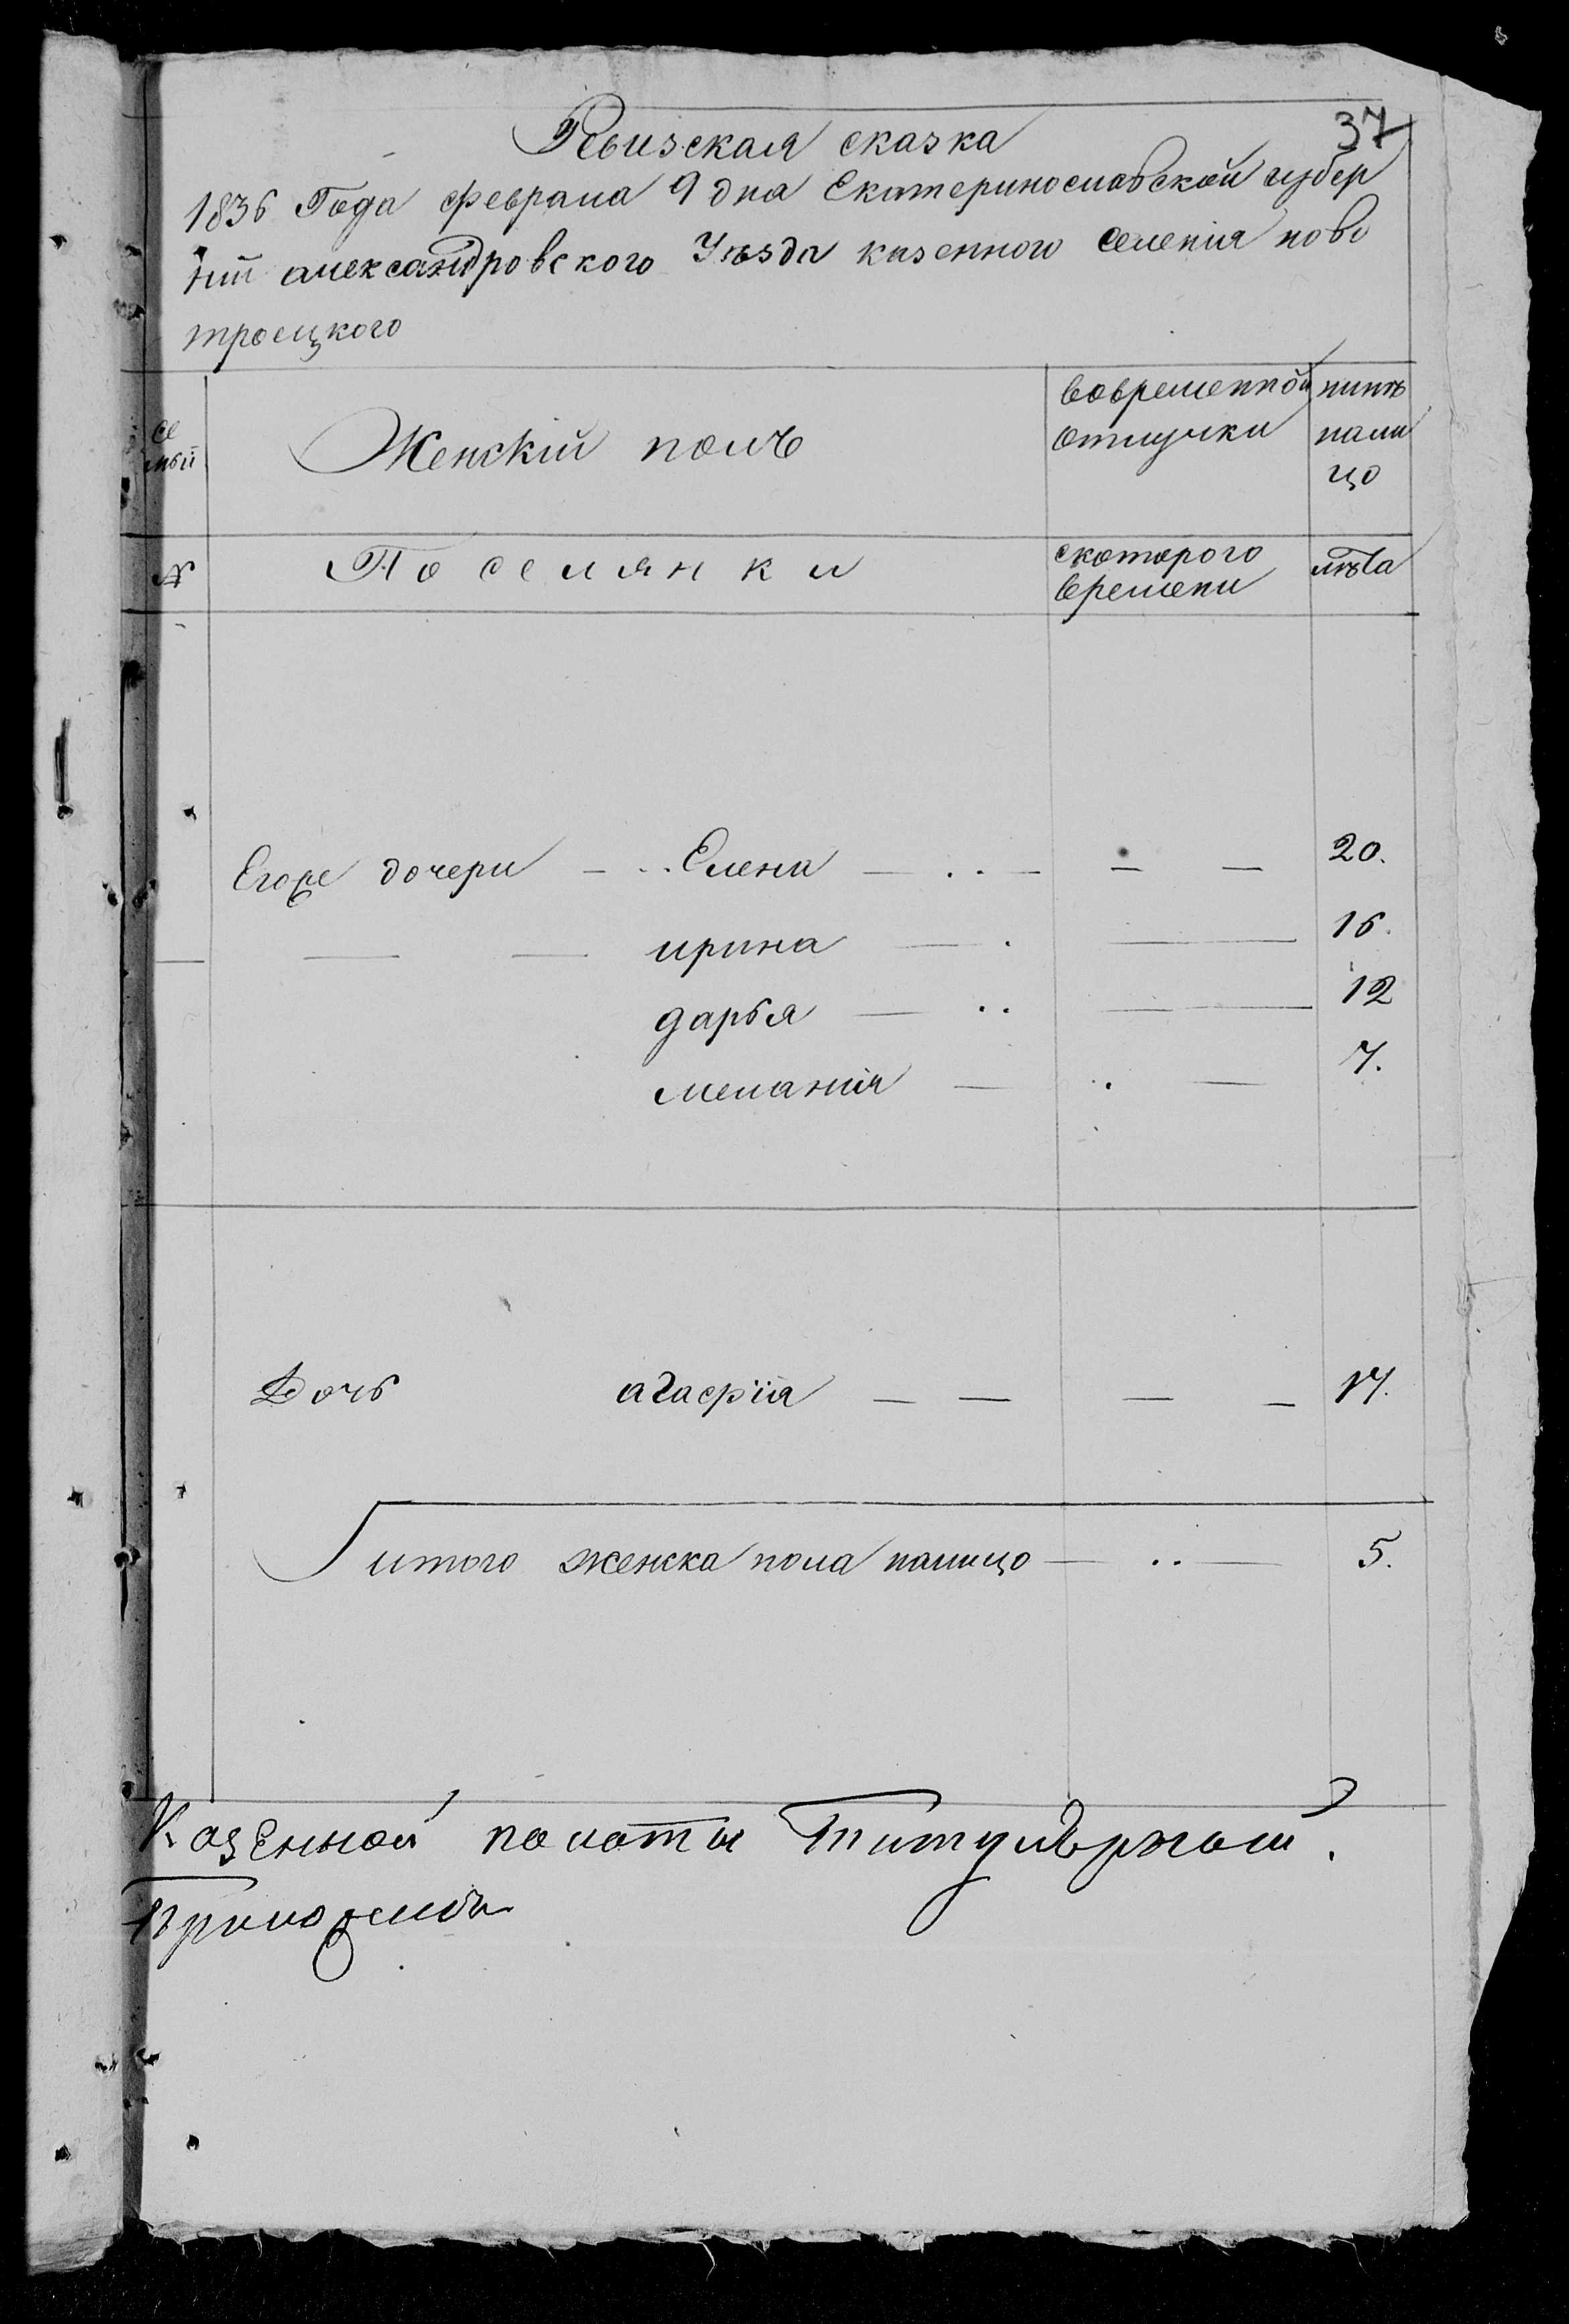 37
Ревизская сказка
1836 Года февраля 9 дня Екатеринославской губер
нии александровского Уезда казенного селения ново
троецкого
се
мьи
Женскій полъ
вовременной
отлучки
нынѣ
нали
цо
№
Поселянки
скоторого
времени
лѣта
Егоре дочери — .. Елена — .. — — — 20.
— — — ирина — . — 16.
дарья — .. — 12
меланія — . — 7.
Дочь агафіія — — — — 17.
итого женска пола налицо — .. — 5.
Казенной палаты Титулярной